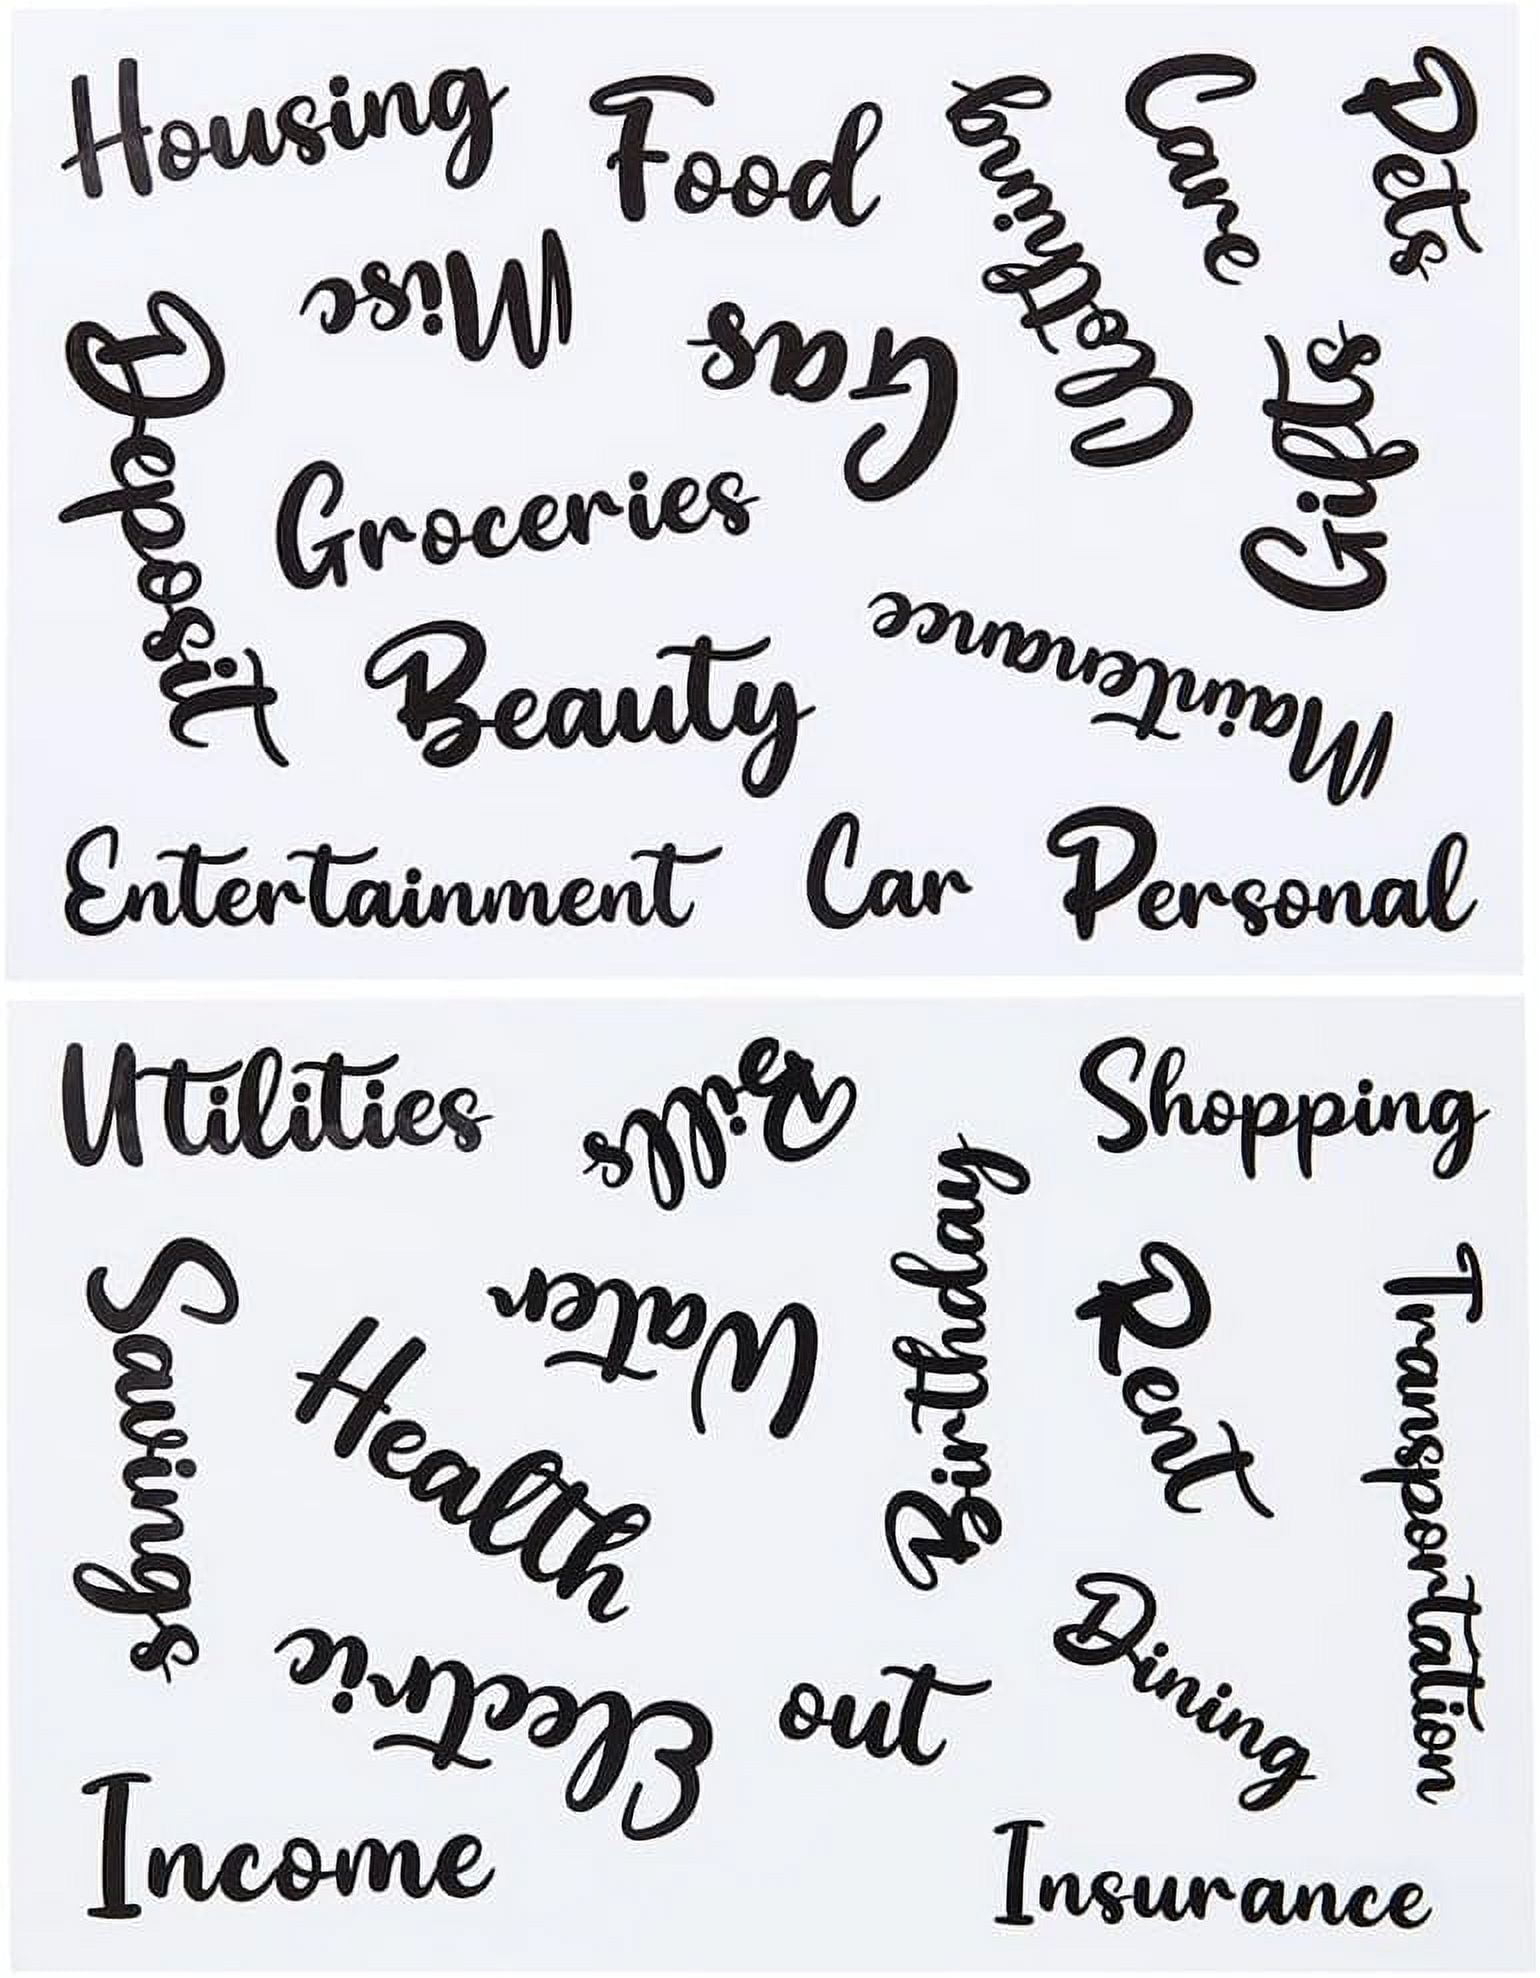 Housing
Food
Clothing
Care
Pets
Misc
Gas
Deposit
Gifts
Groceries
Maintenance
Beauty
Entertainment
Car
Personal
Utilities
Bills
Shopping
Birthday
Savings
Water
Rent
Transportation
Health
Dining
Electric
out
Income
Insurance